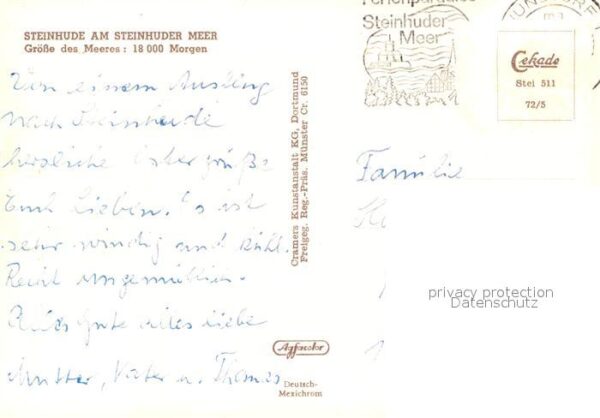 STEINHUDE AM STEINHUDER MEER
Größe des Meeres: 18 000 Morgen
Von einem Ausflug
nach Steinhude
herzliche Ostergrüße
Euch Lieben. Es ist
sehr windig und kühl.
Recht ungemütlich.
Alles Gute alles Liebe
Mutter, Vater u. Thomas
Cramers Kunstanstalt KG, Dortmund
Freigeg. Reg.-Präs. Münster Cr. 6150
Agfacolor
Deutsch-
Mexichrom
Ferienparadies
Steinhuder
Meer
Cekade
Stei 511
72/5
Familie
privacy protection
Datenschutz